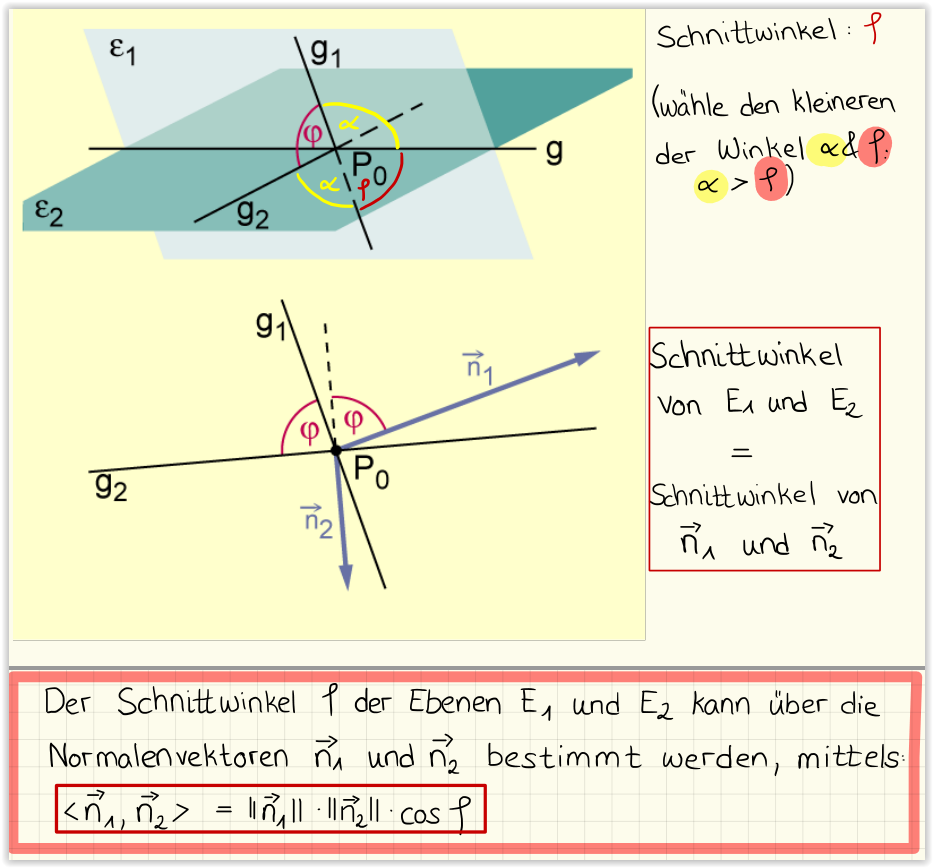 ε1
g1
φ
α
g
P0
α
φ
ε2
g2
Schnittwinkel: φ
(wähle den kleineren
der Winkel α & φ:
α > φ)
g1
n⃗1
φ
φ
P0
g2
n⃗2
Schnittwinkel
von E1 und E2
=
Schnittwinkel von
n⃗1 und n⃗2
Der Schnittwinkel φ der Ebenen E1 und E2 kann über die
Normalenvektoren n⃗1 und n⃗2 bestimmt werden, mittels:
<n⃗1, n⃗2> = ||n⃗1|| · ||n⃗2|| · cos φ